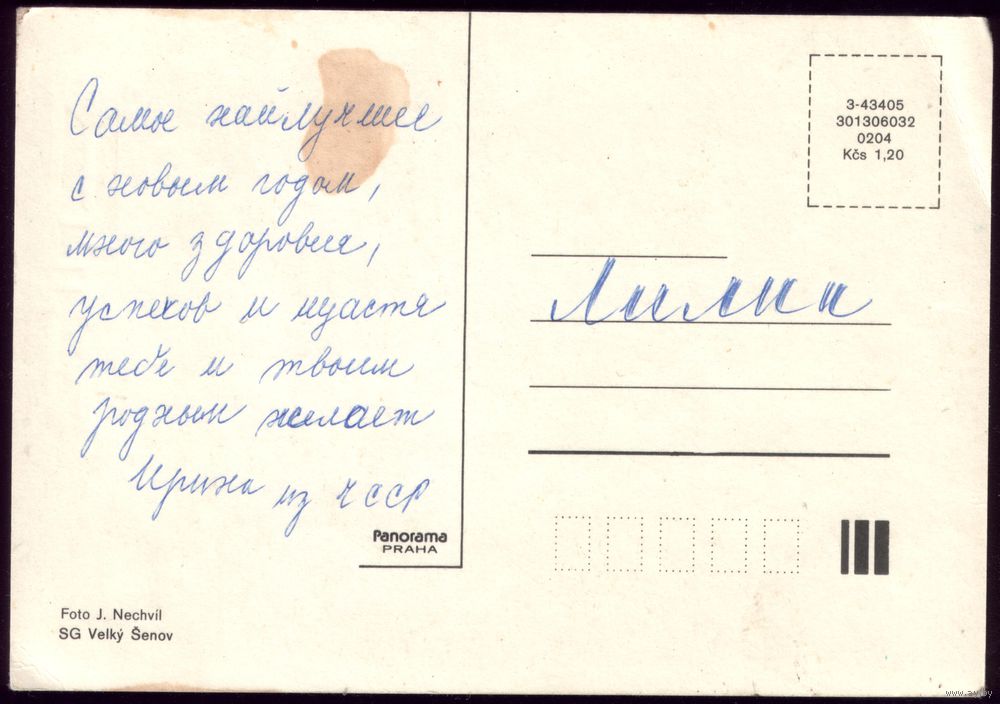 Самое найлучшее
с новым годом,
много здоровия,
успехов и щастя
тебе и твоим
родным желает
Ирина из ЧССР
Panorama
PRAHA
Foto J. Nechvíl
SG Velký Šenov
3-43405
301306032
0204
Kčs 1,20
Лилии
www.ay.by